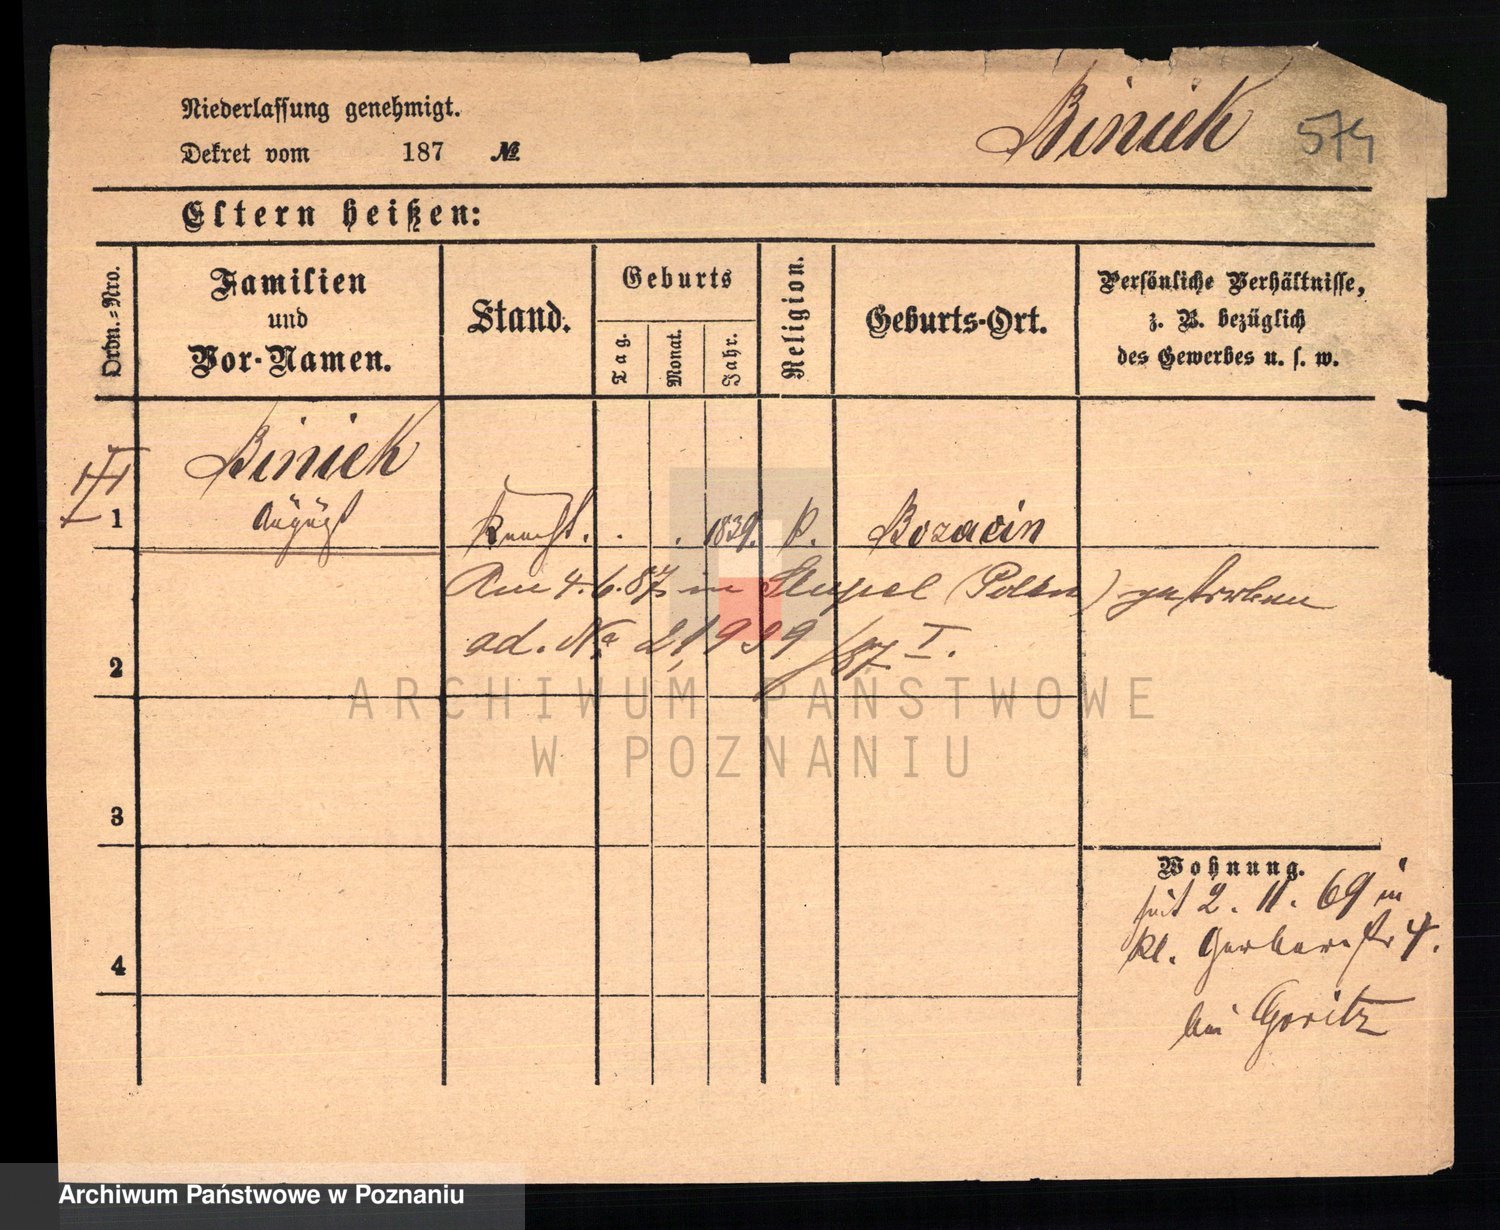 Niederlassung genehmigt.
Dekret vom 187 №
Biniek
574
Eltern heißen:
Ordn.-Nro.
Familien
und
Vor-Namen.
Stand.
Geburts
Tag.
Monat.
Jahr.
Religion.
Geburts-Ort.
Persönliche Verhältnisse,
z. B. bezüglich
des Gewerbes u. s. w.
Biniek
1 August Knecht. . . 1839. k.
Am 4.6.87 in (Polen) gestorben
ad. No 21,939/87 I.
2
3
4
Wohnung.
seit 2. 11. 69 in
kl. Gerberstr 4.
bei Goritz
ARCHIWUM PAŃSTWOWE
W POZNANIU
Archiwum Państwowe w Poznaniu